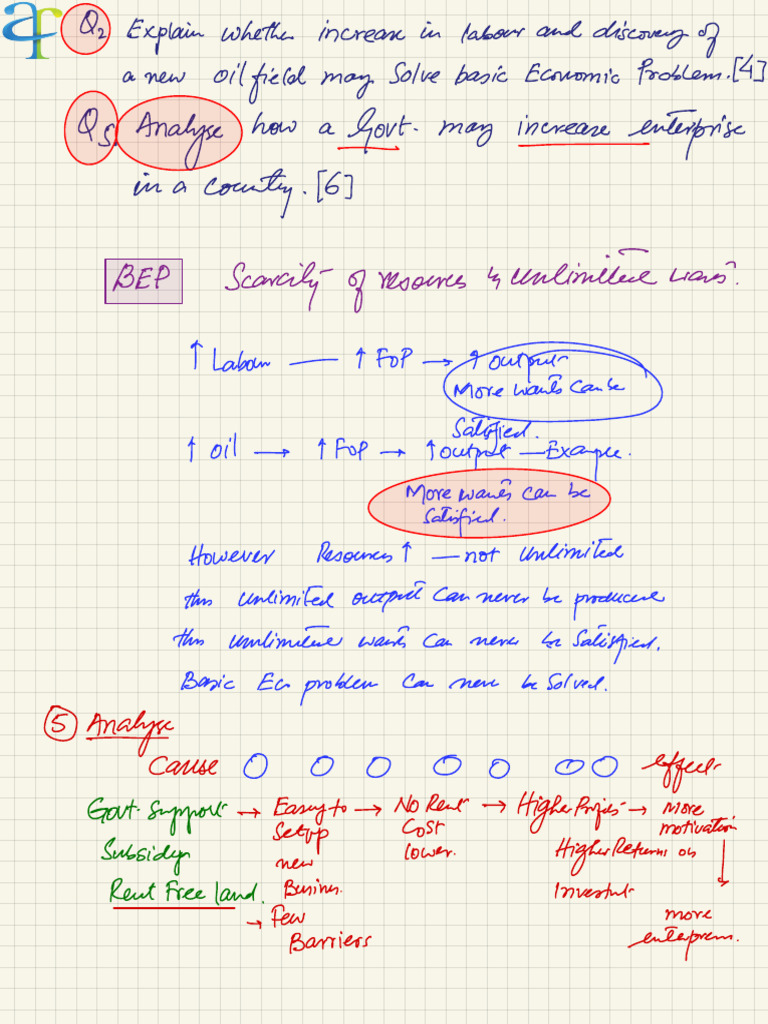 Q2 Explain whether increase in labour and discovery of
a new oil field may Solve basic Economic Problem. [4]
Q5. Analyse how a Govt. may increase enterprise
in a country. [6]
BEP Scarcity of resources & unlimited wants.
↑ Labour — ↑ FoP → ↑ output
More wants can be
Satisfied.
↑ Oil → ↑ FoP → ↑ output — Example.
More wants can be
Satisfied.
However Resources ↑ — not unlimited
thus unlimited output can never be produced
thus unlimited wants can never be satisfied.
Basic Ec problem can never be solved.
5 Analyse
Cause effect
Govt. Support → Easy to → No Rent → Higher Profits → more
Setup Cost motivation
Subsidy new lower. Higher Returns on
Rent Free land. Busines. Investmt
→ Few more
Barriers enterprem.